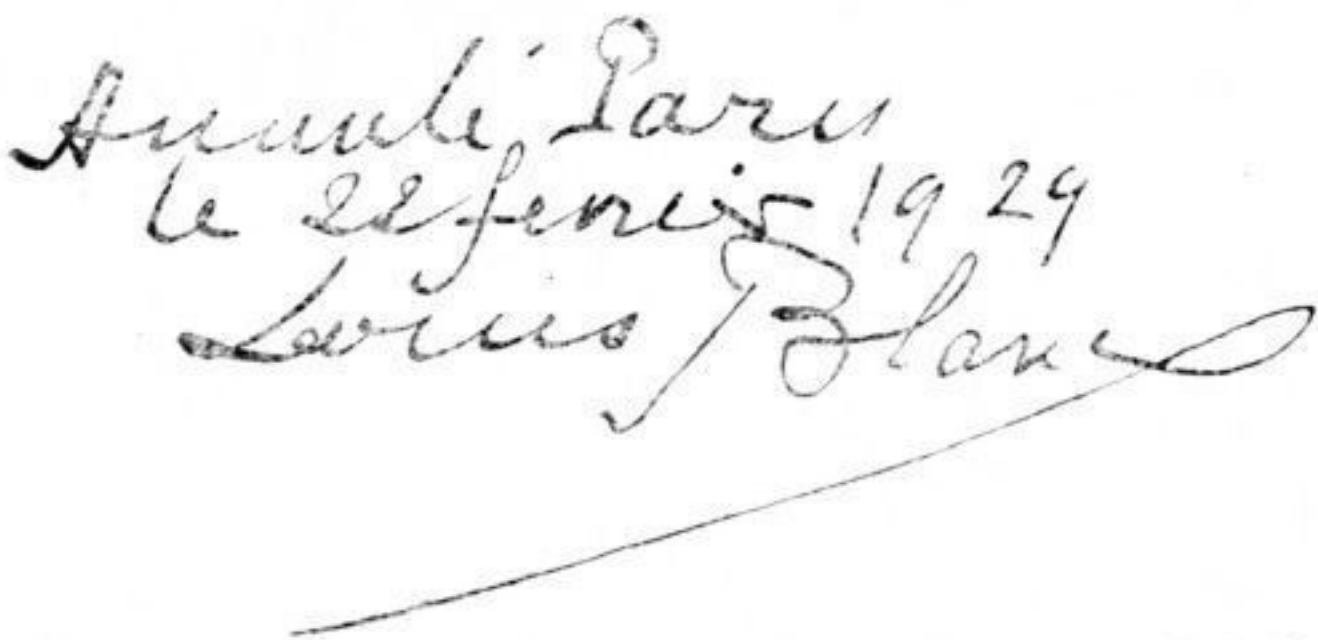 Annulé, Paris
le 22 fevrier 1929
Louis Blanc